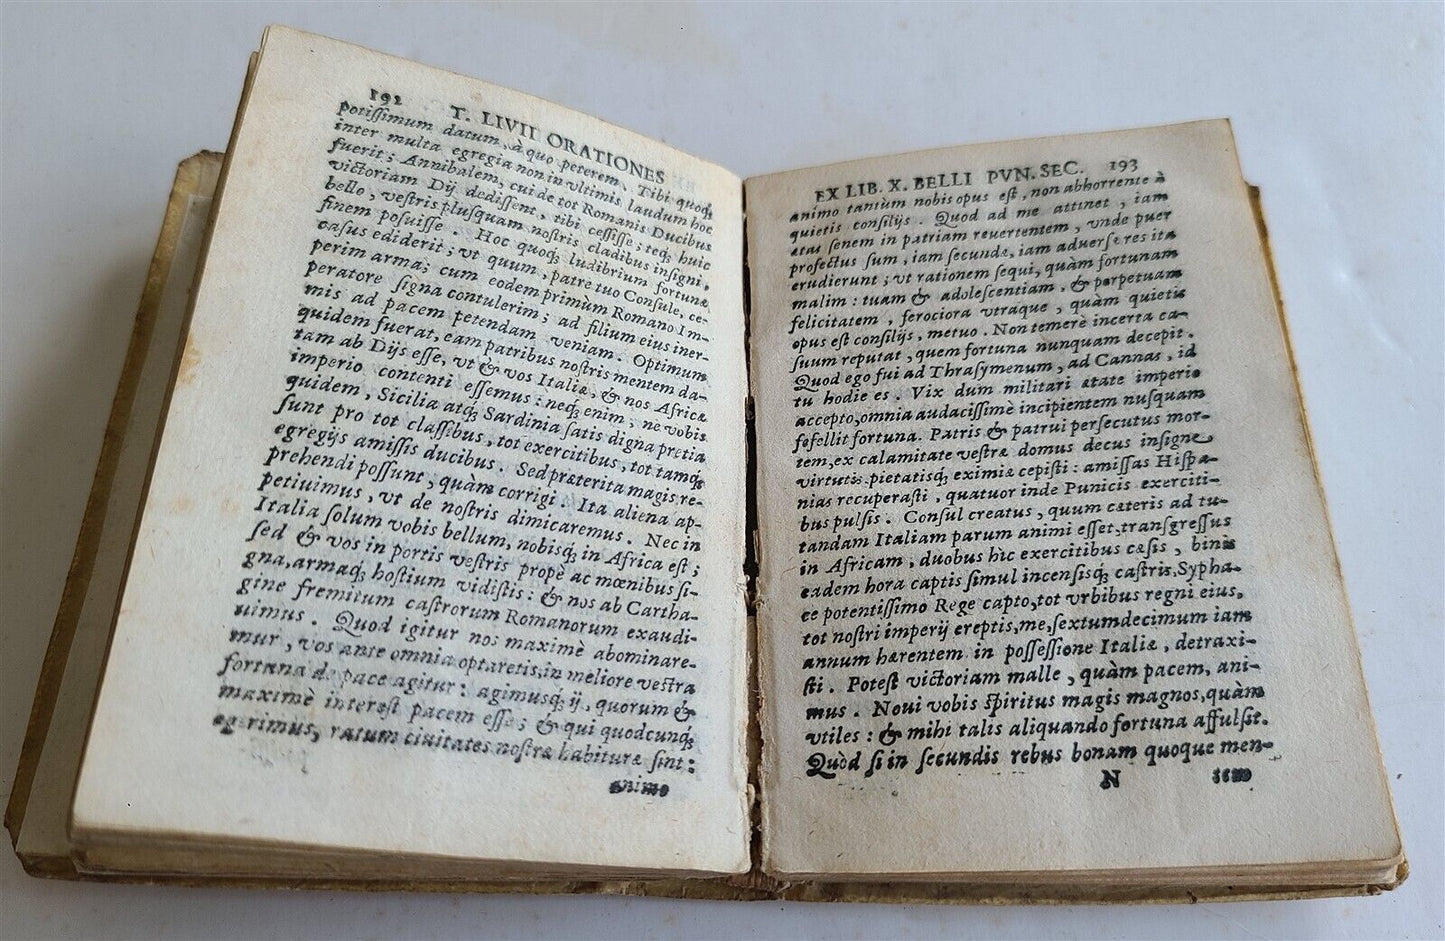 192 T. LIVII ORATIONES
potissimum datum, à quo peterem. Tibi quoq;
inter multa egregia non in ultimis laudum hoc
fuerit; Annibalem, cui de tot Romanis Ducibus
victoriam Dij dedissent, tibi cessisse; teq; huic
bello, vestris plusquam nostris cladibus insigni,
finem posuisse. Hoc quoq; ludibrium fortunæ
casus ediderit; vt quum, patre tuo Consule, ce-
perim arma; cum eodem primum Romano Im-
peratore signa contulerim; ad filium eius iner-
mis ad pacem petendam veniam. Optimum
quidem fuerat, eam patribus nostris mentem da-
tam ab Dijs esse, vt & vos Italiæ, & nos Africæ
imperio contenti essemus: neq; enim, ne vobis
quidem, Sicilia atq; Sardinia satis digna pretia
sunt pro tot classibus, tot exercitibus, tot tamq;
egregijs amissis ducibus. Sed præterita magis re-
prehendi possunt, quàm corrigi. Ita aliena ap-
petiuimus, vt de nostris dimicaremus. Nec in
Italia solum vobis bellum, nobisq; in Africa est;
sed & vos in portis vestris propè ac mœnibus si-
gna, armaq; hostium vidistis: & nos ab Cartha-
gine fremitum castrorum Romanorum exaudi-
uimus. Quod igitur nos maximè abominare-
mur, vos ante omnia optaretis, in meliore vestra
fortuna de pace agitur: agimusq; ij, quorum &
maximè interest pacem esse; & qui quodcunq;
egerimus, ratum ciuitates nostræ habituræ sint:
animo
EX LIB. X. BELLI PVN. SEC. 193
animo tantùm nobis opus est, non abhorrente à
quietis consilijs. Quod ad me attinet, iam
ætas senem in patriam reuertentem, vnde puer
profectus sum, iam secundæ, iam aduersæ res ita
erudierunt; vt rationem sequi, quàm fortunam
malim: tuam & adolescentiam, & perpetuam
felicitatem, ferociora vtraque, quàm quietis
opus est consilijs, metuo. Non temerè incerta ca-
suum reputat, quem fortuna nunquam decepit.
Quod ego fui ad Thrasymenum, ad Cannas, id
tu hodie es. Vix dum militari ætate imperio
accepto, omnia audacissimè incipientem nusquam
fefellit fortuna. Patris & patrui persecutus mor-
tem, ex calamitate vestræ domus decus insigne
virtutis, pietatisq; eximiæ cepisti: amissas Hispa-
nias recuperasti, quatuor inde Punicis exerciti-
bus pulsis. Consul creatus, quum cæteris ad tu-
tandam Italiam parum animi esset, transgressus
in Africam, duobus hìc exercitibus cæsis, binis
eadem hora captis simul incensisq; castris, Sypha-
ce potentissimo Rege capto, tot vrbibus regni eius,
tot nostri imperij ereptis, me, sextumdecimum iam
annum hærentem in possessione Italiæ, detraxi-
sti. Potest victoriam malle, quàm pacem, ani-
mus. Noui vobis spiritus magis magnos, quàm
vtiles: & mihi talis aliquando fortuna affulsit.
Quòd si in secundis rebus bonam quoque men-
N